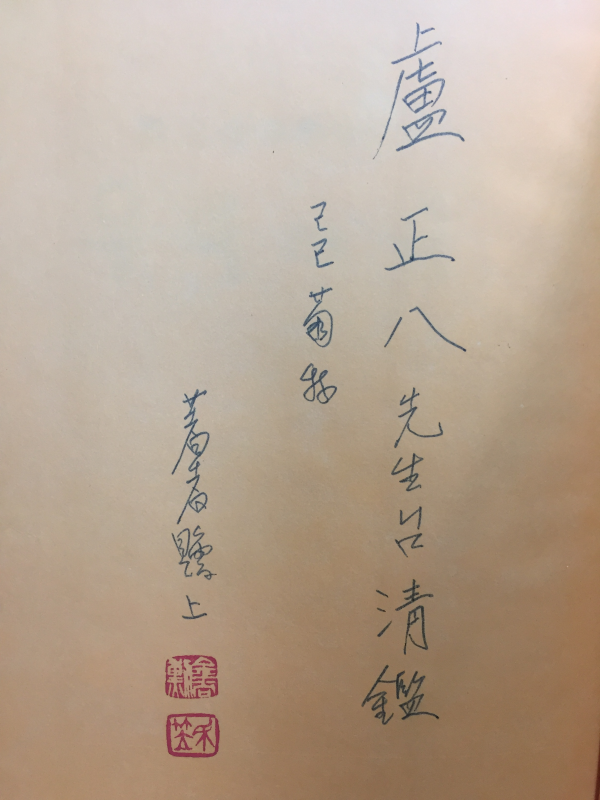 盧正八先生清鑑
己巳菊秋
著者上